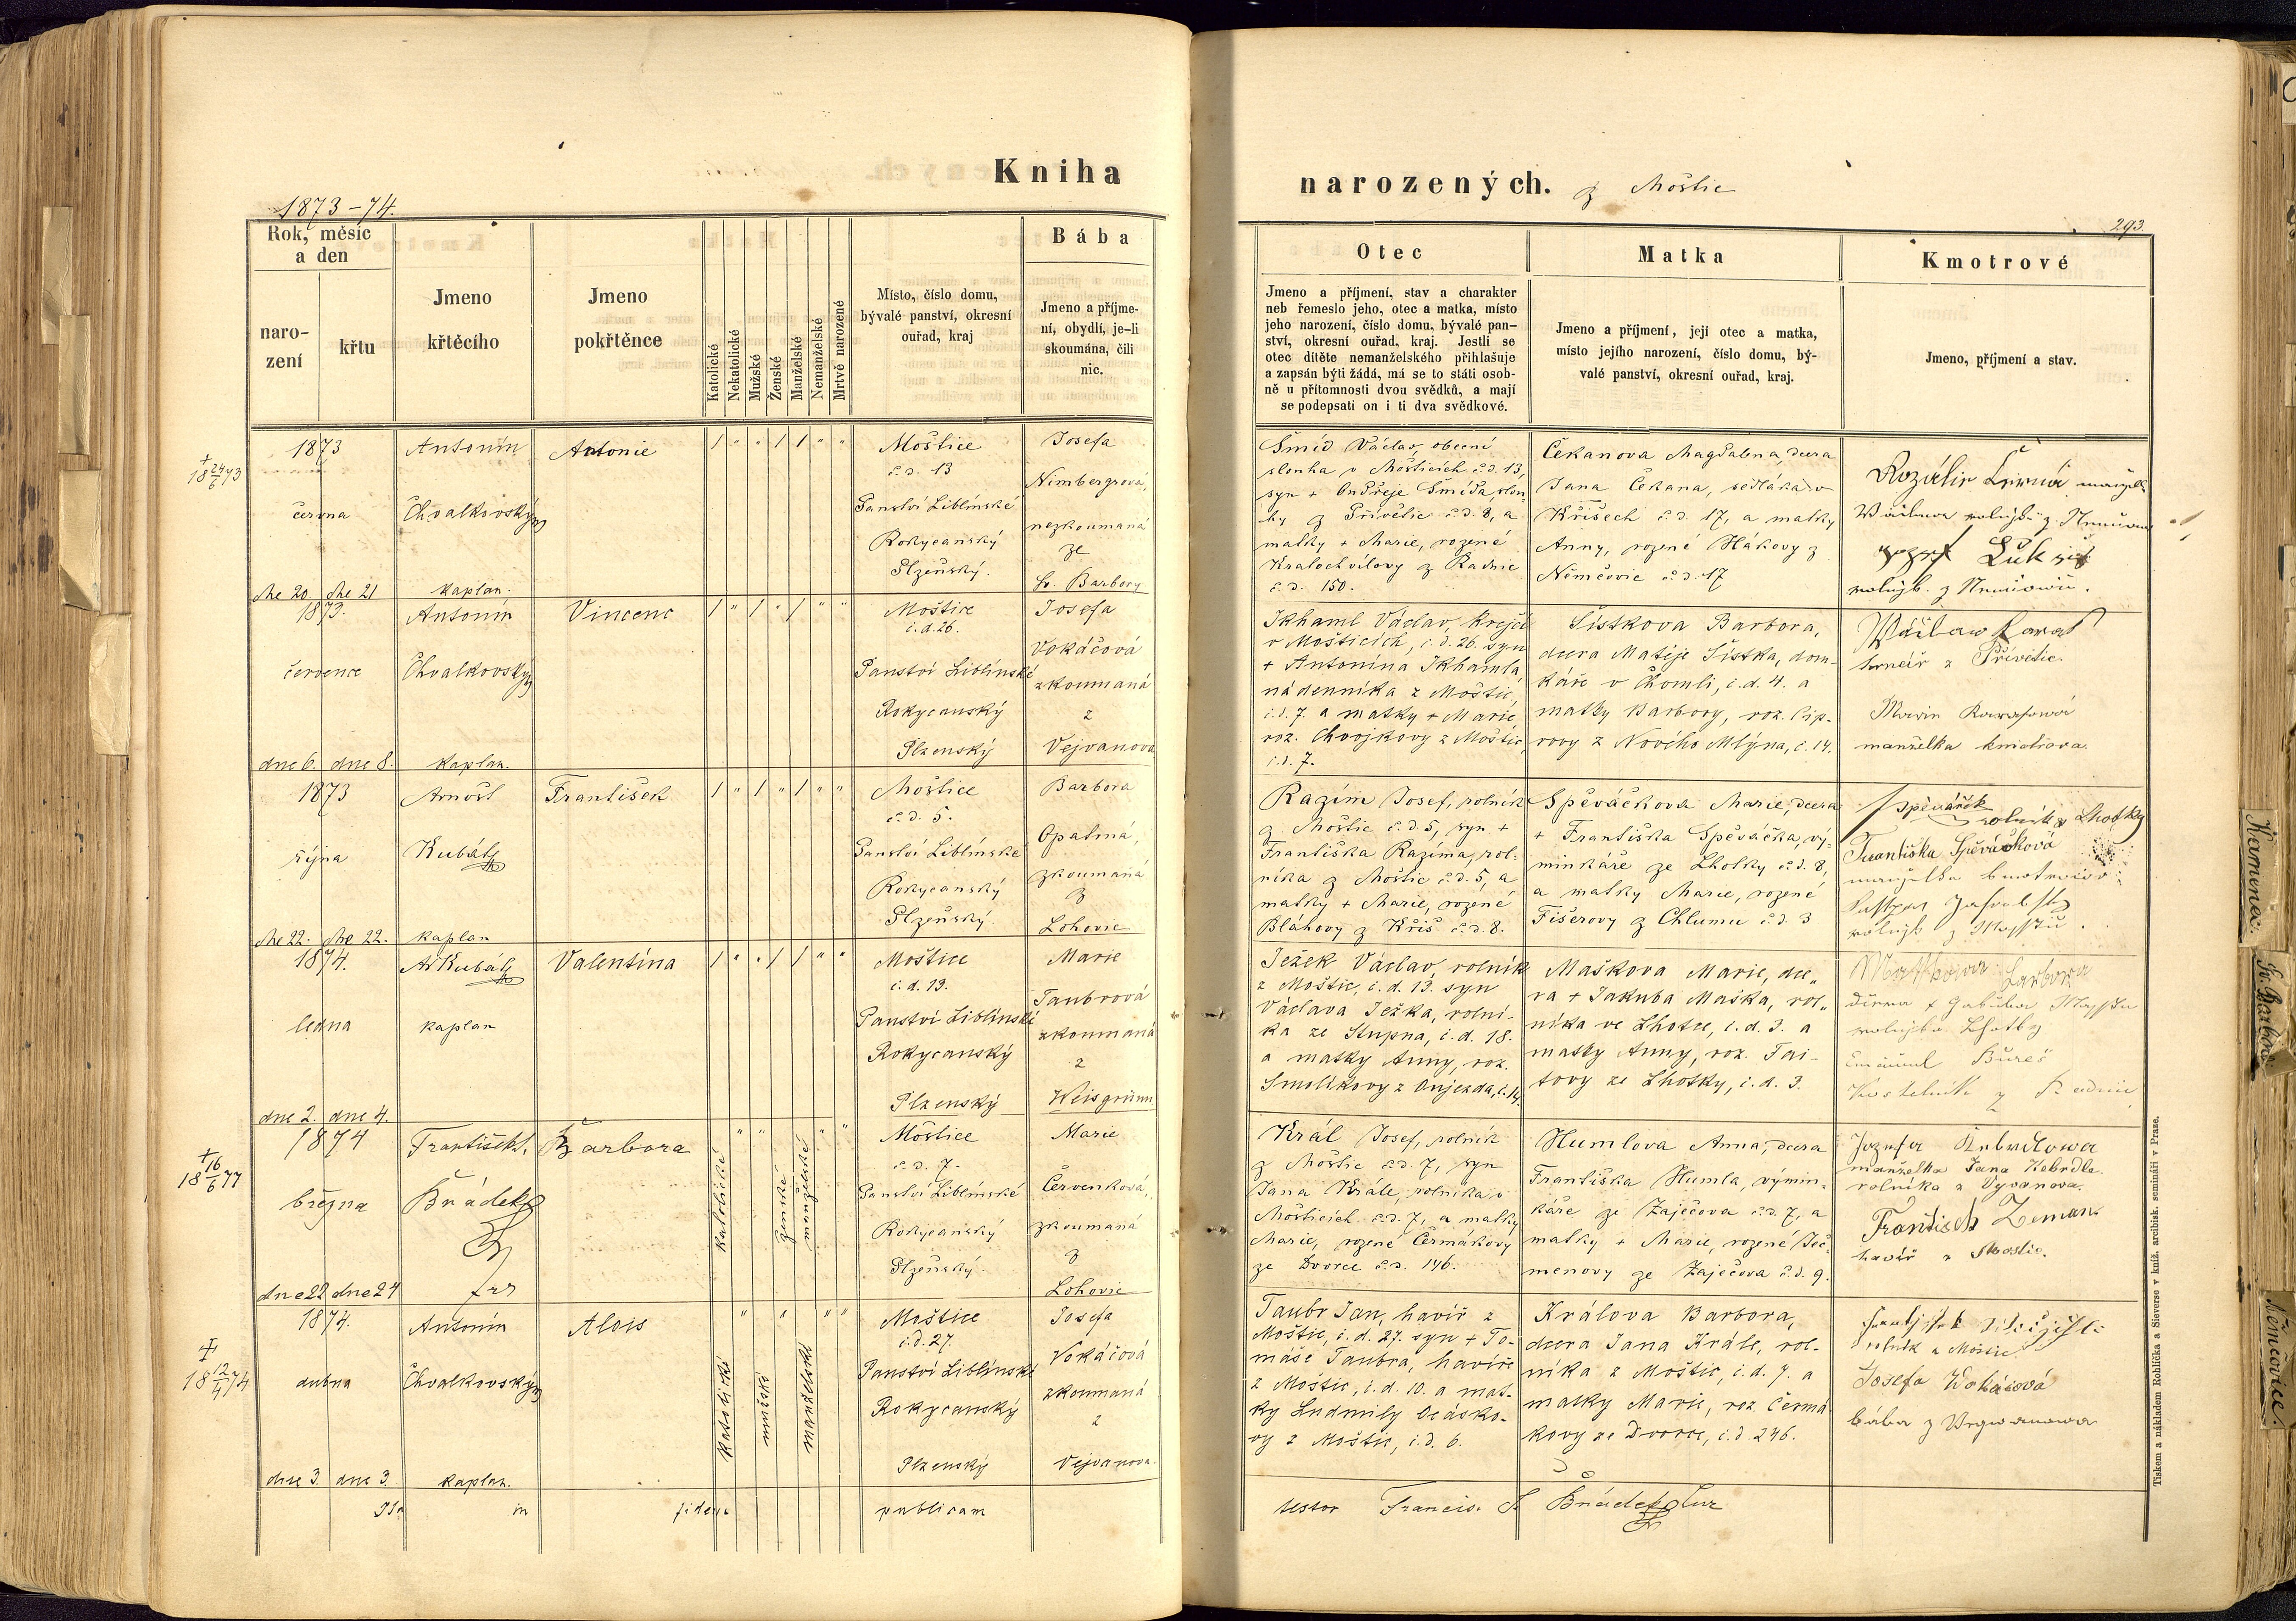 Kniha
narozených. z Moštic
1873-74.
293.
Rok, měsíc
a den
naro-
zení
křtu
Jmeno
křtěcího
Jmeno
pokřtěnce
Katolické
Nekatolické
Mužské
Ženské
Manželské
Nemanželské
Mrtvě narozené
Místo, číslo domu,
bývalé panství, okresní
ouřad, kraj
Bába
Jmeno a příjme-
ní, obydlí, je-li
skoumána, čili
nic.
Otec
Jmeno a příjmení, stav a charakter
neb řemeslo jeho, otec a matka, místo
jeho narození, číslo domu, bývalé pan-
ství, okresní ouřad, kraj. Jestli se
otec dítěte nemanželského přihlašuje
a zapsán býti žádá, má se to státi osob-
ně u přítomnosti dvou svědků, a mají
se podepsati on i ti dva svědkové.
Matka
Jmeno a příjmení, její otec a matka,
místo jejího narození, číslo domu, bý-
valé panství, okresní ouřad, kraj.
Kmotrové
Jmeno, příjmení a stav.
+ 18 24/6 73
1873
června
dne 20. dne 21
Antonín
Chvalkovský
kaplan.
Antonie
Moštice
č. d. 13
Panství Liblínské
Rokycanský
Plzeňský.
Josefa
Nimbergrová,
nezkoumaná
ze
sv. Barbory
Šmíd Václav, obecní
slouha v Mošticích č. d. 13,
syn + Ondřeje Šmída, slou-
hy z Přívětic č. d. 8, a
matky + Marie, rozené
Kratochvílovy z Radnic
č. d. 150.
Čekanova Magdalena, dcera
Jana Čekana, sedláka v
Křišech č. d. 17, a matky
Anny, rozené Hákovy z
Němčovic č. d. 17
Rozálie
1873.
července
dne 6. dne 8.
Antonín
Chvalkovský
kaplan.
Vincenc
Moštice
č. d. 26.
Panství Liblínské
Rokycanský
Plzenský
Josefa
Vokáčová
zkoumaná
z
Vejvanova
Ikhaml Václav, krejčí
v Mošticích, č. d. 26. syn
+ Antonína Ikhamla,
nádenníka z Moštic,
č. d. 7. a matky + Marie,
roz. Chvojkovy z Moštic,
č. d. 7.
Šístkova Barbora,
dcera Matěje Šístka, dom-
káře v Chomli, č. d. 4. a
matky Barbory, roz. Pip-
rovy z Nového Mlýna, č. 14.
Václav
z Přívětic.
manželka kmotrova.
1873
října
dne 22. dne 22.
Arnošt
Kubát
kaplan
František
Moštice
č. d. 5.
Panství Liblínské
Rokycanský
Plzeňský.
Barbora
Opatrná,
zkoumaná
z
Lohovic
Razím Josef, rolník
z Moštic č. d. 5, syn +
Františka Razíma, rol-
níka z Moštic č. d. 5, a
matky + Marie, rozené
Bláhovy z Křiš č. d. 8.
Spěváčkova Marie, dcera
+ Františka Spěváčka, vý-
minkáře ze Lhotky č. d. 8,
a matky Marie, rozené
Fišerovy z Chlumu č. d. 3
Spěváček
rolník z Lhotky
Františka Spěváčková
1874.
ledna
dne 2. dne 4.
Ar Kubát
kaplan
Valentina
Moštice
č. d. 19.
Panství Liblínské
Rokycanský
Plzenský
Marie
Taubrová
zkoumaná
z
Weisgrünn
Ježek Václav, rolník
z Moštic, č. d. 19. syn
Václava Ježka, rolní-
ka ze Stupna, č. d. 18.
a matky Anny, roz.
Smolíkovy z Oujezda, č. 14.
Maškova Marie, dce-
ra + Jakuba Maška, rol-
níka ve Lhotce, č. d. 3. a
matky Anny, roz. Tai-
tovy ze Lhotky, č. d. 3.
Bureš
Kostelník z Radnic
+ 18 16/6 77
1874
března
dne 22 dne 24
František S.
Brádek
Barbora
katolické
ženské
manželské
Moštice
č. d. 7.
Panství Liblínské
Rokycanský
Plzeňský.
Marie
Červenková,
zkoumaná
z
Lohovic
Král Josef, rolník
z Moštic č. d. 7, syn
Jana Krále, rolníka v
Mošticích č. d. 7, a matky
Marie, rozené Čermákovy
ze Dvorce č. d. 146.
Humlova Anna, dcera
Františka Humla, výmin-
káře ze Zaječova č. d. 7, a
matky + Marie, rozené Ječ-
menovy ze Zaječova č. d. 9.
Jozefa Kebrdlowa
manželka Jana Kebrdle
rolníka z Vyvanova.
František Zeman
havíř z Moštic.
+ 18 12/4 74
1874.
dubna
dne 3. dne 3.
Antonín
Chvalkovský
kaplan.
Alois
katolické
mužské
manželské
Moštice
č. d. 27.
Panství Liblínské
Rokycanský
Plzenský
Josefa
Vokáčová
zkoumaná
z
Vejvanova.
Taubr Jan, havíř z
Moštic, č. d. 27. syn + To-
máše Taubra, havíře
z Moštic, č. d. 10. a mat-
ky Ludmily Ocásko-
vy z Moštic, č. d. 6.
Králova Barbora,
dcera Jana Krále, rol-
níka z Moštic, č. d. 7. a
matky Marie, roz. Čermá-
kovy ze Dvorce, č. d. 246.
rolník z Moštic
Josefa Wokáčová
bába z
in fidem publicam
testor Francis. S. Brádek
Tiskem a nákladem Rohlíčka a Sieverse v kníž. arcibisk. semináři v Praze.
Kamenec.
Sv. Barbora
Němčovice.